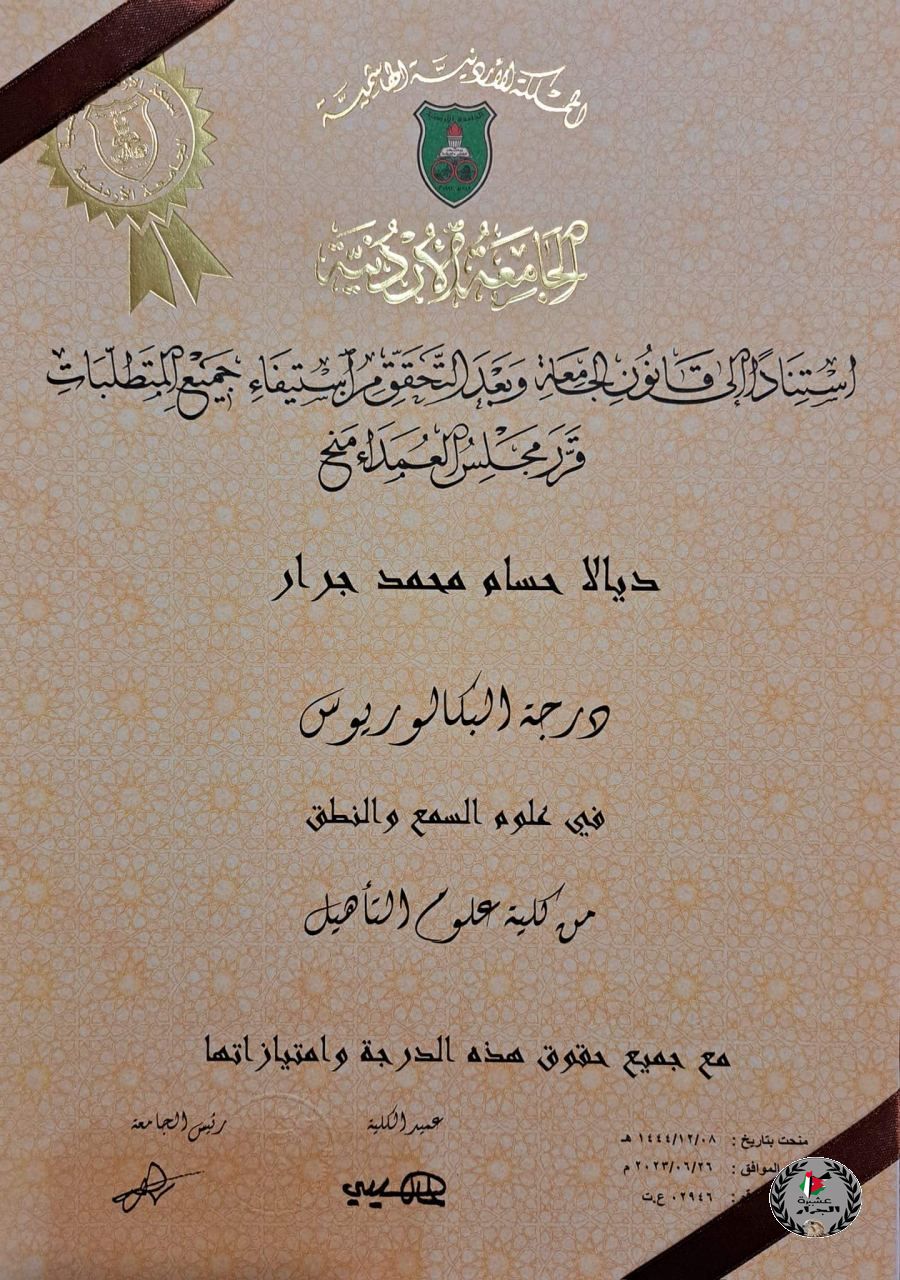 المملكة الأردنية الهاشمية
الجامعة الأردنية
الجامعة الأردنية
الجامعة الأردنية
استنادًا إلى قانون الجامعة وبعد التحقق من استيفاء جميع المتطلبات
قرر مجلس العمداء منح
ديالا حسام محمد جرار
درجة البكالوريوس
في علوم السمع والنطق
من كلية علوم التأهيل
مع جميع حقوق هذه الدرجة وامتيازاتها
رئيس الجامعة
عميد الكلية
منحت بتاريخ : ١٤٤٤/١٢/٠٨ هـ
الموافق : ٢٠٢٣/٠٦/٢٦ م
٠٢٩٤٦ ع.ت
عشيرة
الجرار